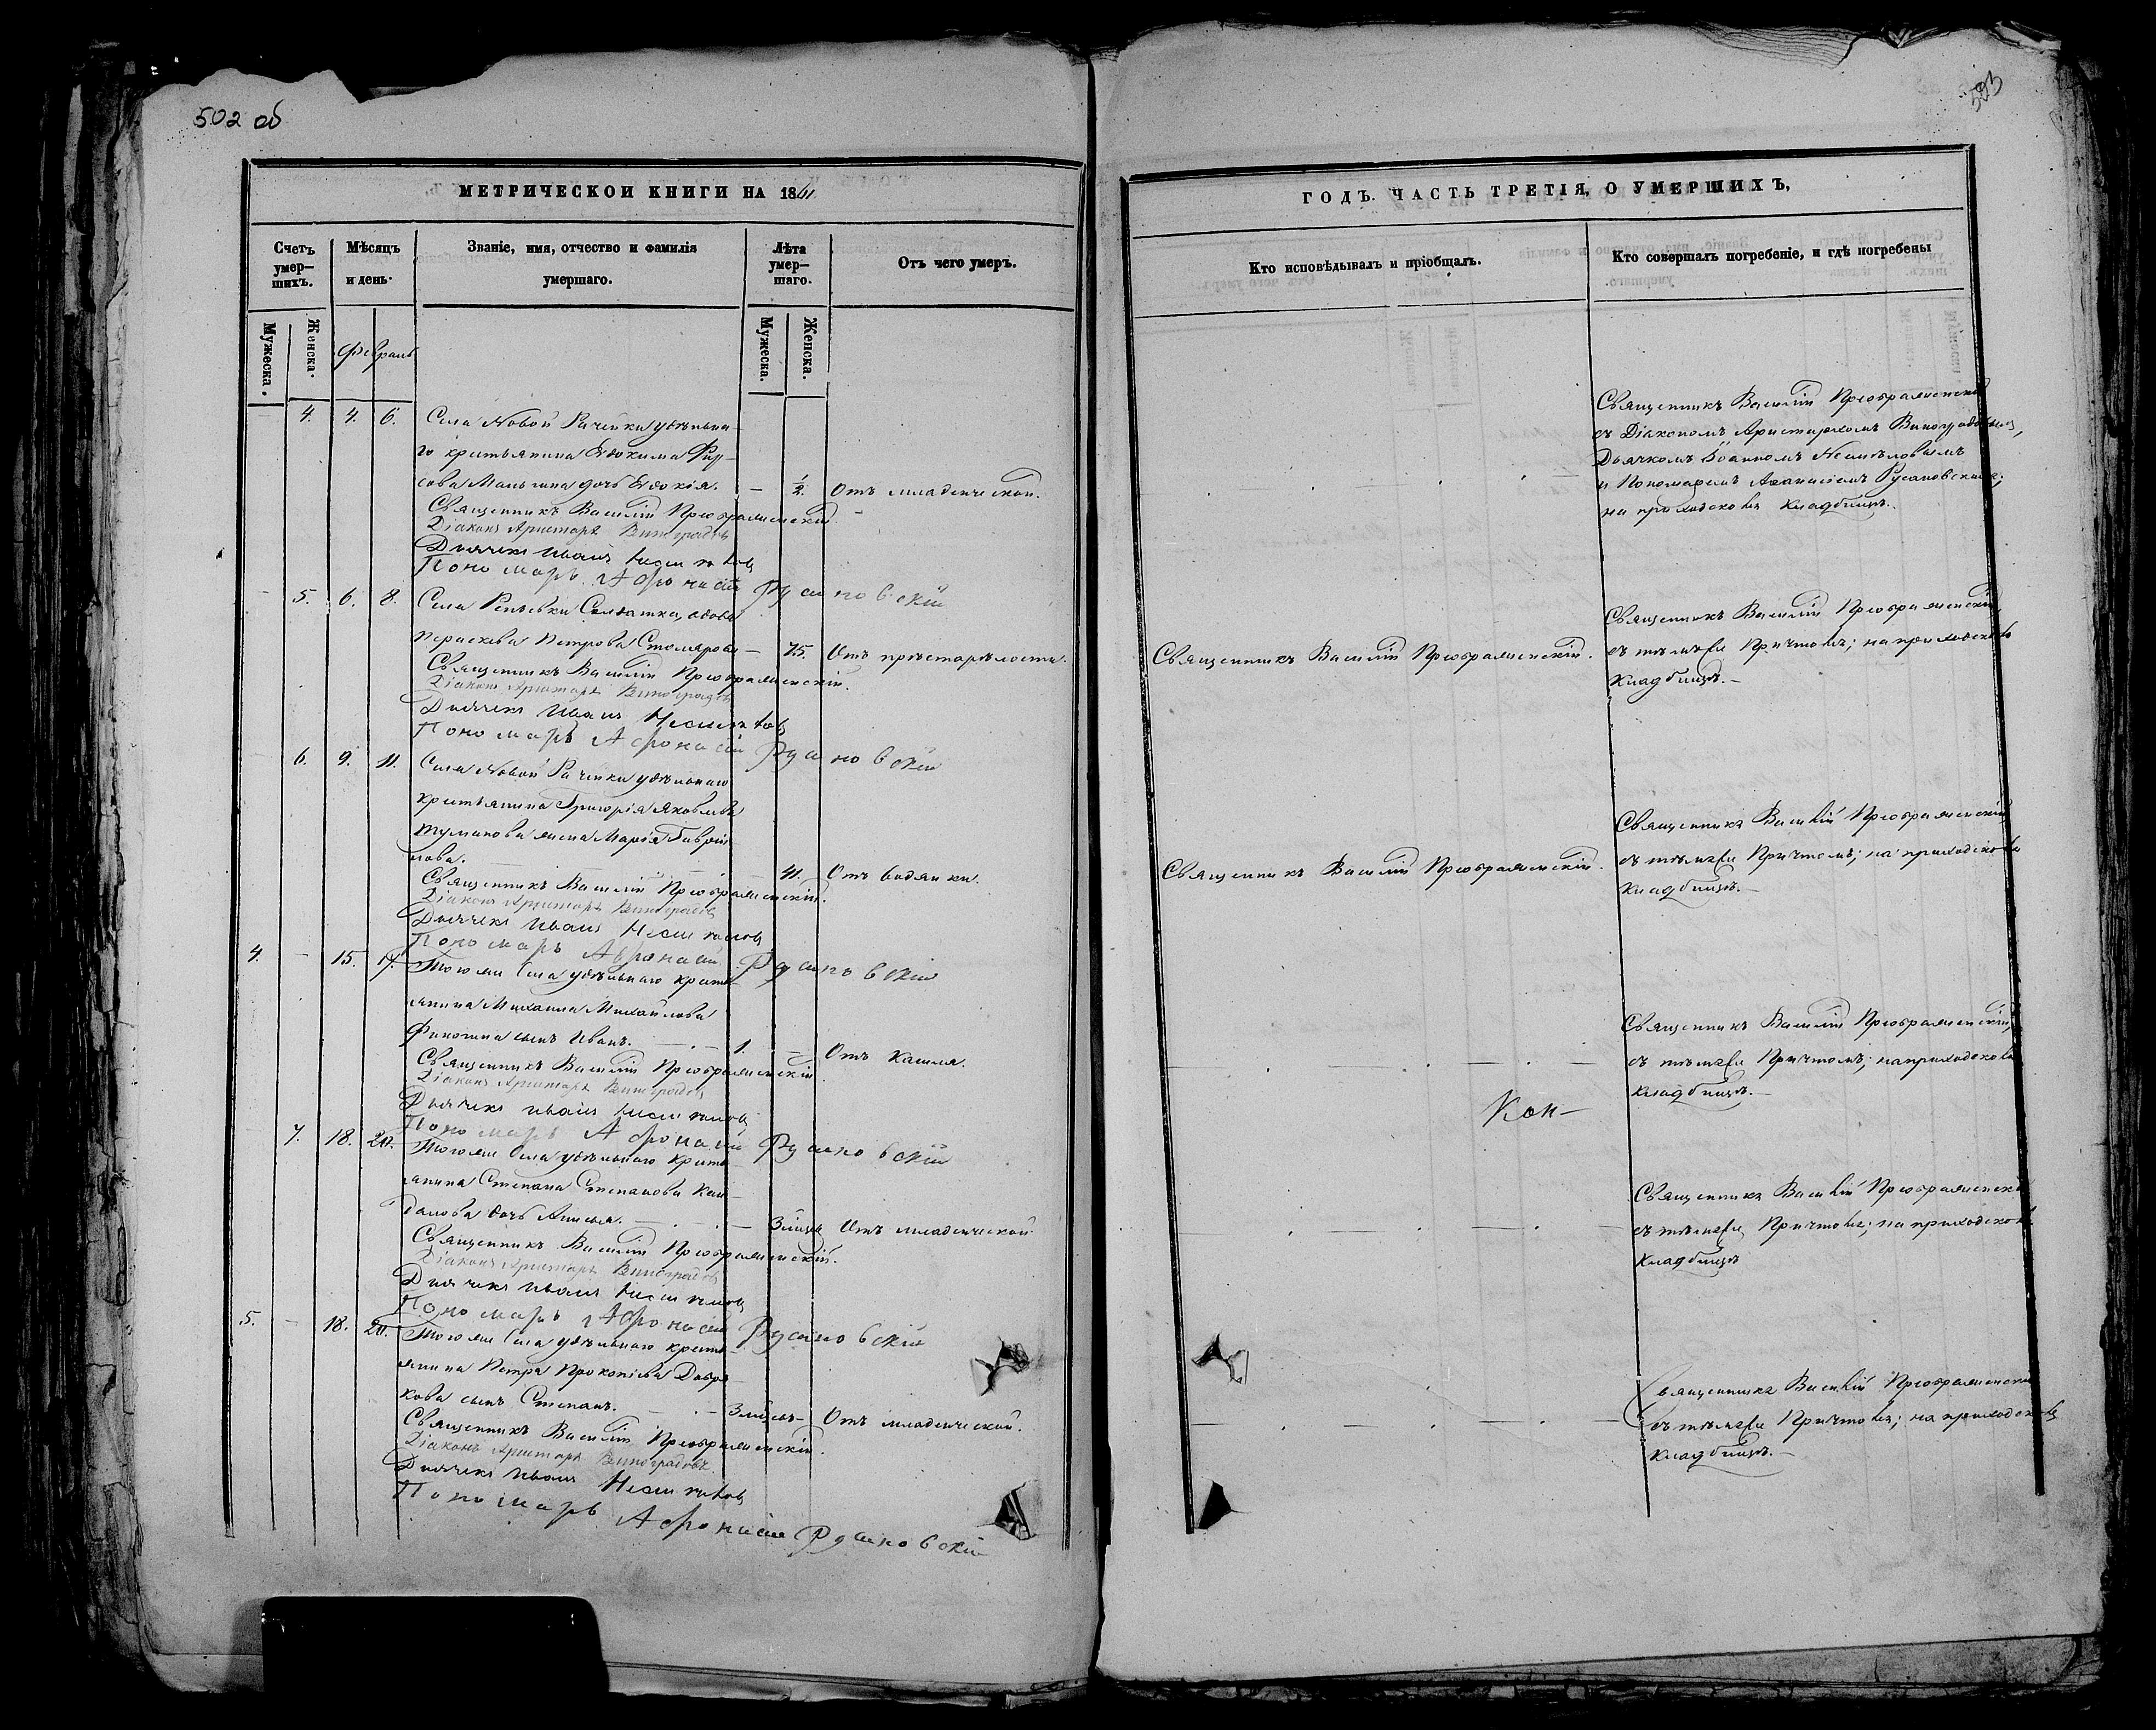 502 об
МЕТРИЧЕСКОЙ КНИГИ НА 1861
Счетъ умер-шихъ.
Мѣсяцъ и день.
Званіе, имя, отчество и фамилія умершаго.
Лѣта умер-шаго.
Отъ чего умеръ.
Мужеска.
Женска.
Февраль
Мужеска.
Женска.
4. 4. 6. Села Новой Рачейки удѣльна-
го крестьянина Евдокима Фир-
сова дочь Евдокія. — ½. Отъ младенческой.
Священникъ Василій Преображенскій.
Діаконъ Аристархъ Виноградовъ
Дьячекъ Иванъ
Пономарь Афонасій
5. 6. 8. Села Репьевки Солдатка, вдова
Параскева Петрова Столярова — 75. Отъ престарѣлости.
Священникъ Василій Преображенскій.
Діаконъ Аристархъ Виноградовъ
Дьячекъ Иванъ
Пономарь Афонасій
6. 9. 11. Села Новой Рачейки удѣльнаго
крестьянина Григорія Яковлева
Туманова жена Марія Гаврiи
лова. — 41. Отъ водянки.
Священникъ Василій Преображенскій.
Діаконъ Аристархъ Виноградовъ
Дьячекъ Иванъ
Пономарь Афонасій
4. — 15. 17. Того же села удѣльнаго кресть-
янина Михаила Михайлова
сынъ Иванъ. — 1. — Отъ кашля.
Священникъ Василій Преображенскій
Діаконъ Аристархъ Виноградовъ
Дьячекъ Иванъ
Пономарь Афонасій
7. 18. 20. Того же села удѣльнаго кресть-
янина Степана Степанова Кан-
далова дочь Анисья. — 3 мѣсц Отъ младенческой
Священникъ Василій Преображенскій.
Діаконъ Аристархъ Виноградовъ
Дьячекъ Иванъ
Пономарь Афонасій
5. — 18. 20. Того же села удѣльнаго кресть-
янина Петра Прокопіева
кова сынъ Степанъ. — 3 — Отъ младенческой.
Священникъ Василій Преображенскій.
Діаконъ Аристархъ Виноградовъ
Дьячекъ Иванъ
Пономарь Афонасій
ГОДЪ. ЧАСТЬ ТРЕТІЯ, О УМЕРШИХЪ,
Кто исповѣдывалъ и пріобщалъ.
Кто совершалъ погребеніе, и гдѣ погребены
Священникъ Василій Преображенскій
съ Діакономъ Аристархомъ Виноградовымъ,
Дьячкомъ Іоанномъ
и Пономаремъ Аѳанасіемъ
на приходскомъ кладбищѣ.
Священникъ Василій Преображенскій.
Священникъ Василій Преображенскій,
съ тѣмъ же Причтомъ; на приходскомъ
кладбищѣ. —
Священникъ Василій Преображенскій.
Священникъ Василій Преображенскій
съ тѣмъ же Причтомъ; на приходскомъ
кладбищѣ. —
Священникъ Василій Преображенскій,
съ тѣмъ же Причтомъ; на приходскомъ
кладбищѣ. —
Кон-
Священникъ Василій Преображенскій
съ тѣмъ же Причтомъ; на приходскомъ
кладбищѣ
Священникъ Василій Преображенскій
съ тѣмъ же Причтомъ; на приходскомъ
кладбищѣ. —